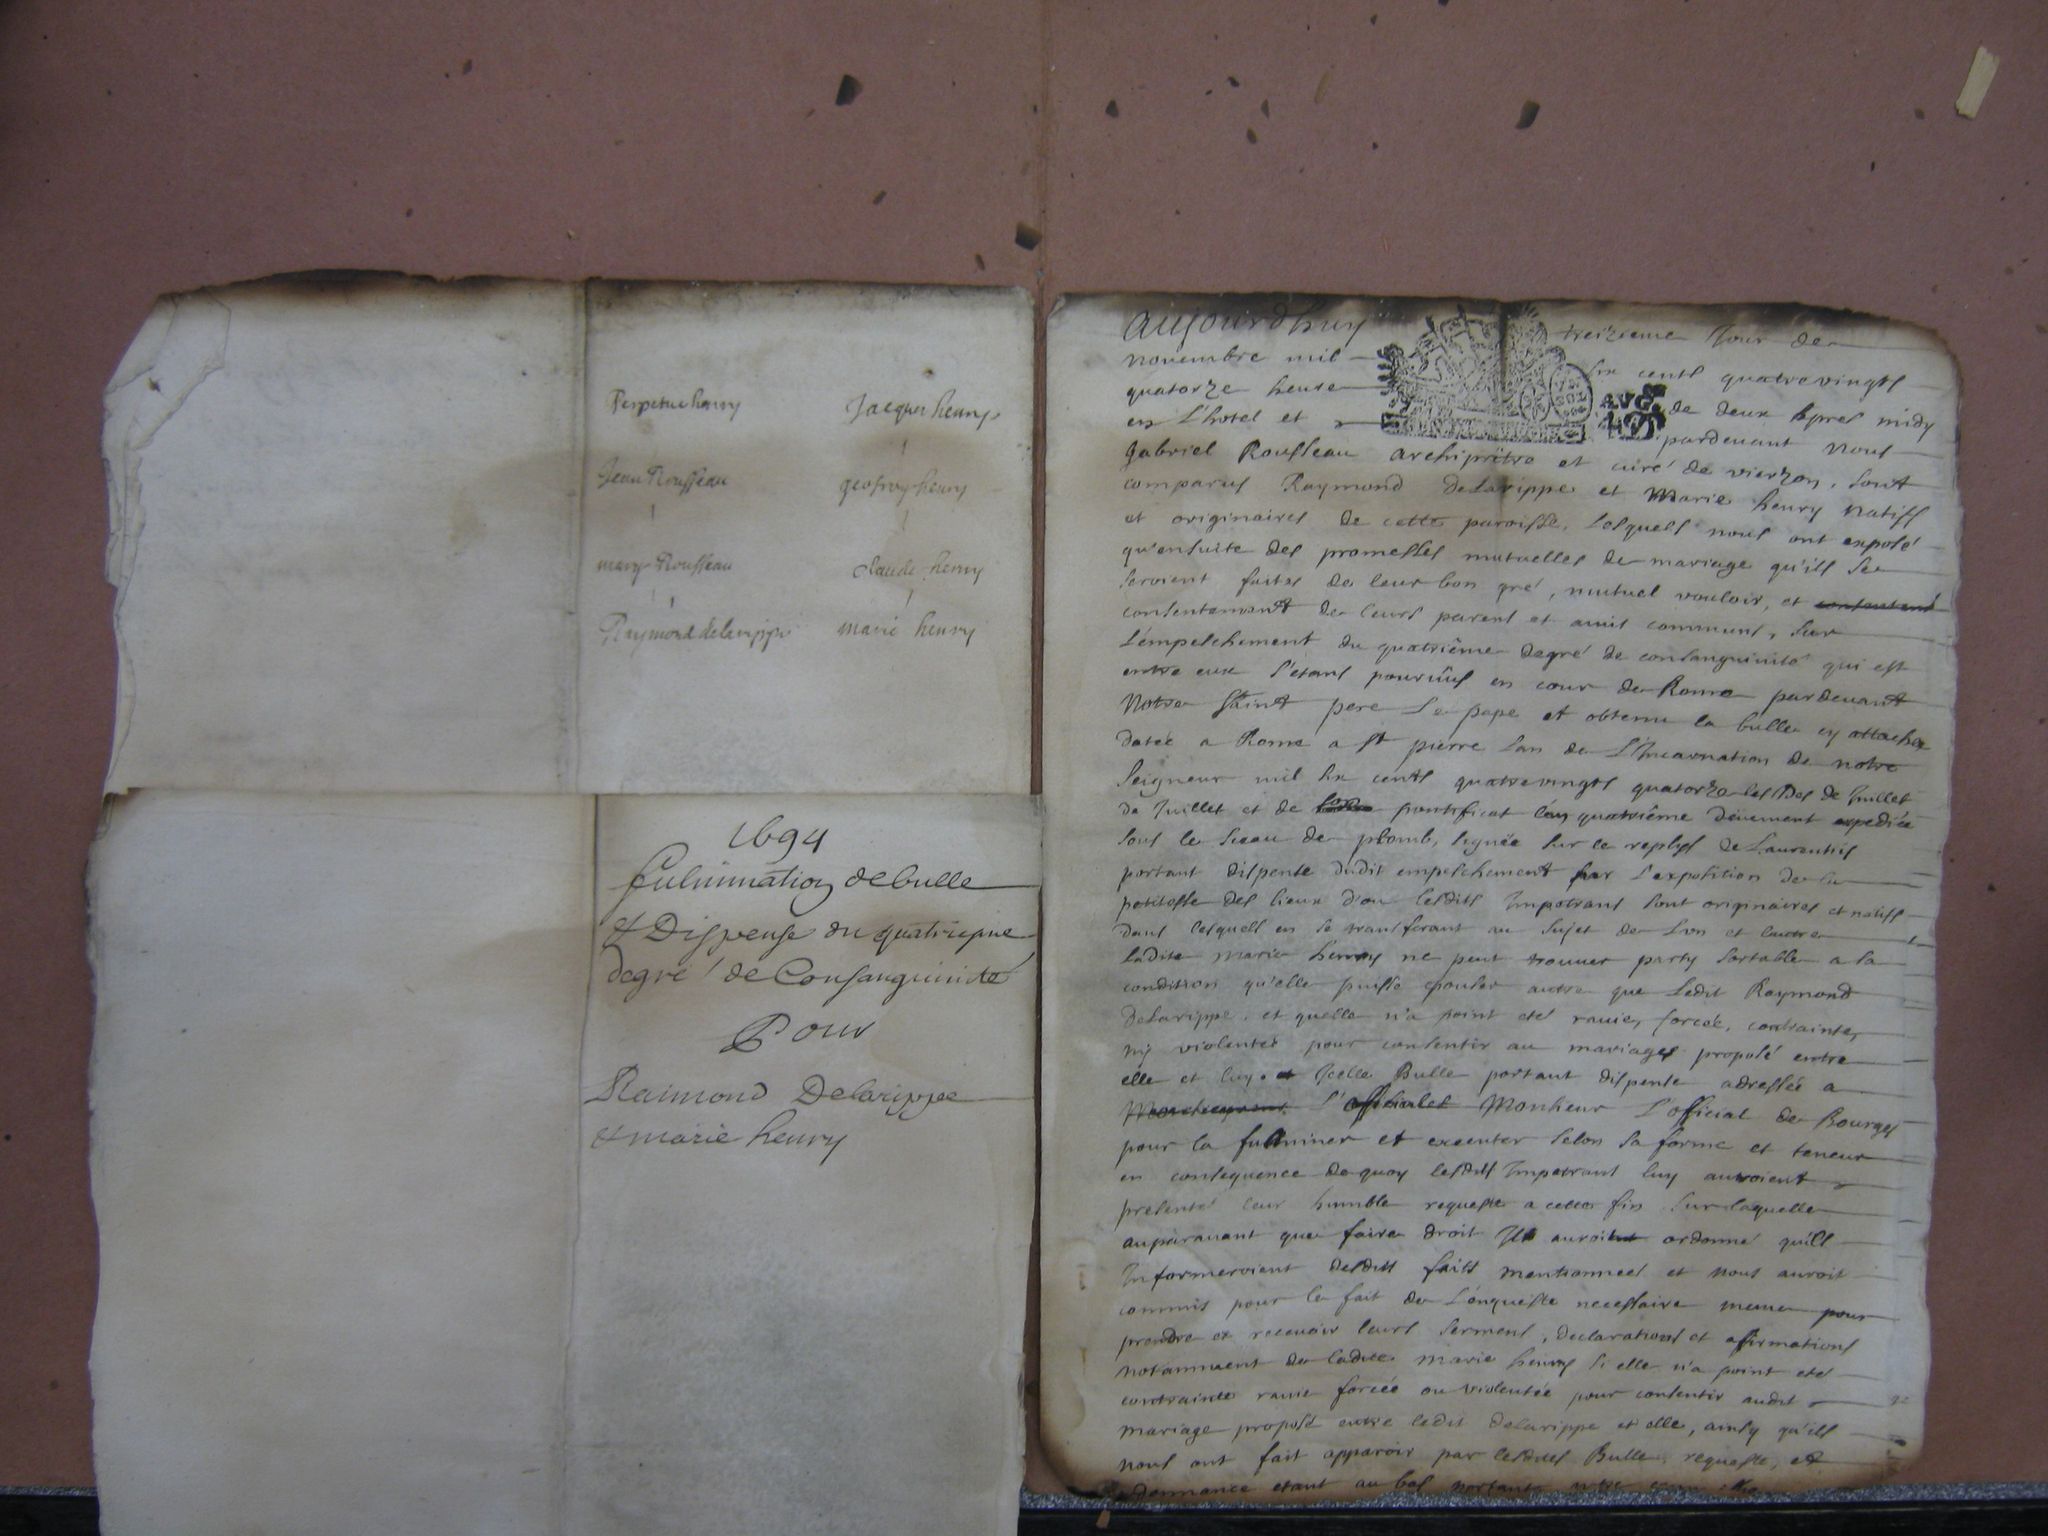 Perpetue henry Jacques henry
Jean Rousseau geofroy henry
mary Rousseau claude henry
Raymond delarippe marie henry
1694
fulmination de bulle
et Dispense du quatriesme
degré de Consanguinité
Pour
Raimond Delarippe
et marie henry
aujourdhuy treizieme Jour de
novembre mil six cents quatrevingts
quatorze heure de deux apres midy
en L'hotel et pardevant nous
Gabriel Rousseau archiprêtre et curé de vierzon, sont
comparus Raymond DeLarippe et Marie henry natifs
et originaires de cette paroisse, lesquels nous ont exposé
qu'ensuite des promesses mutuelles de mariage qu'ils se
seroient faites de leur bon gré, mutuel vouloir, et consentant
consentement de leurs parens et amis communs, sur
L'empeschement du quatriême degré de consanguinité qui est
entre eux s'etans pourvûs en cour de Rome pardevant
Notre Saint pere Le pape et obtenu la bulle cy attachée
datée a Rome a St pierre Lan de L'Incarnation de notre
Seigneur mil six cents quatrevingts quatorze les Ides de Juillet
de Juillet et de son pontificat L'an quatriême Dëuement expediée
sous le sceau de plomb, signée sur le reply de Laurentiis
portant dispense dudit empeschement sur L'exposition de la
petitesse des lieux d'ou lesdits Impetrans sont originaires et natifs
dans lesquels en se transferant au sujet de L'un et lautre
Ladite marie henry ne peut trouver party sortable a la
condition qu'elle puisse epouser autre que Ledit Raymond
DeLarippe, et quelle n'a point eté ravie, forcée, contrainte,
ny violentée pour consentir au mariage proposé entre
elle et luy. et Icelle Bulle portant dispense adressée a
L'official Monsieur L'official de Bourges
pour la fulminer et executer selon sa forme et teneur
en consequence de quoy lesdits Impetrans luy auroient
presenté leur humble requeste a cettes fin sur laquelle
auparavant que faire droit Il auroit ordonné quils
Informeroient desdits faits mentionnees et nous auroit
commis pour le fait de L'enqueste necessaire meme pour
prendre et recevoir leurs sermens, declarations et affirmations
notamment de ladite marie henry si elle n'a point eté
contrainte ravie forcée ou violentée pour consentir audit
mariage proposé entre ledit delarippe et elle, ainsy qu'ils
nous ont fait apparoir par lesdites Bulle, requeste, et
ordonnance etant au bas portant notre